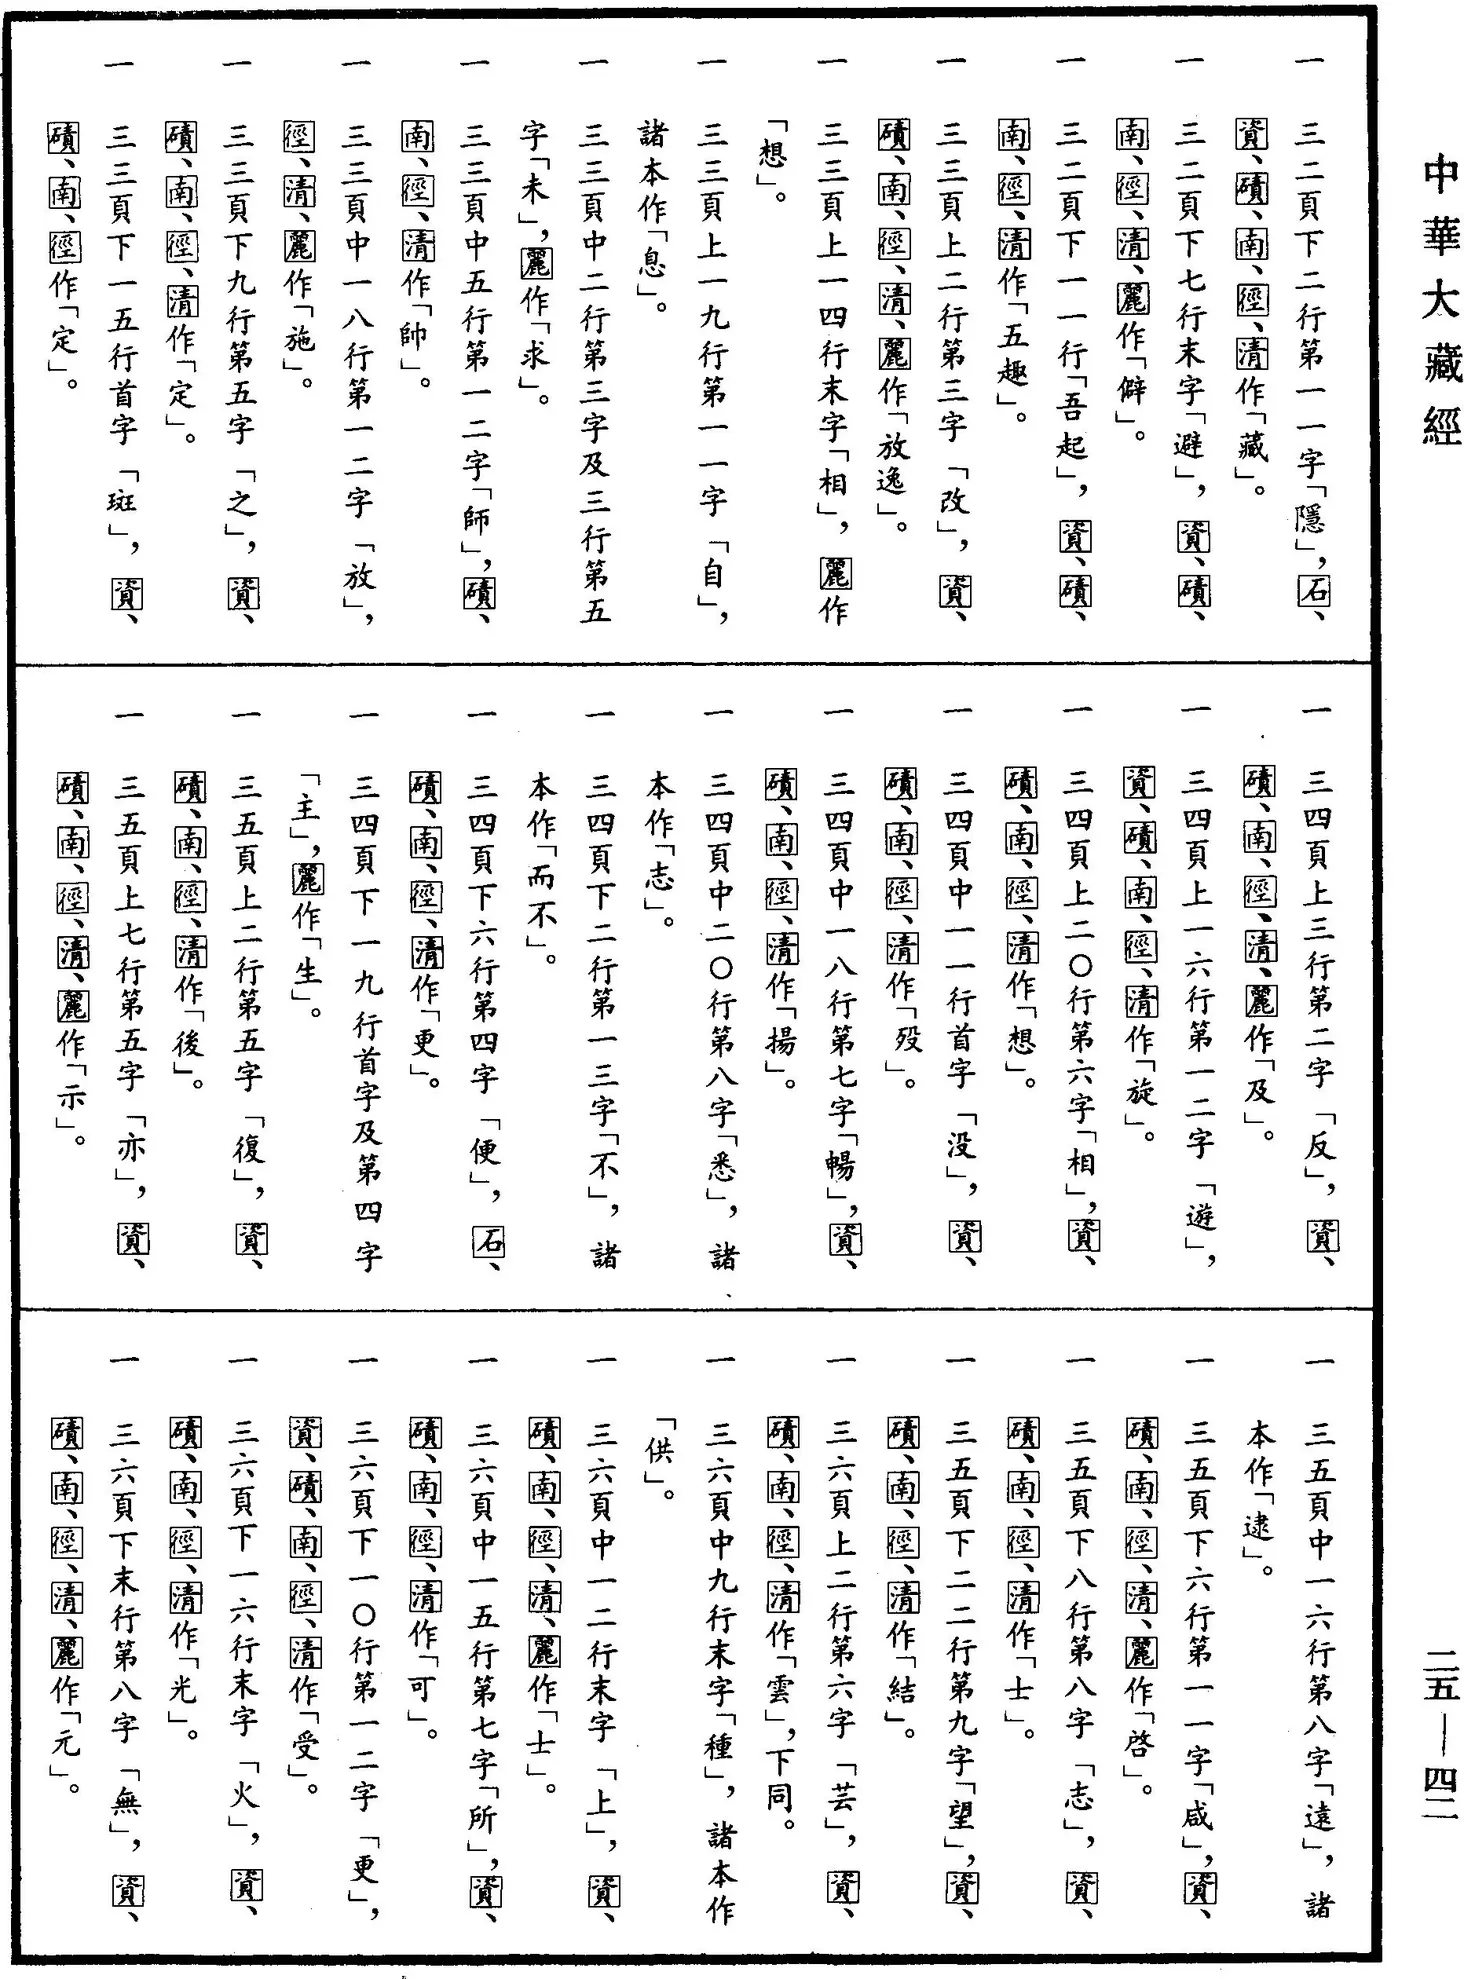 中華大藏經
一　三二頁下二行第一一字「隱」，石、
資、磧、南、徑、清作「藏」。
一　三二頁下七行末字「避」，資、磧、
南、徑、清、麗作「僻」。
一　三二頁下一一行「吾起」，資、磧、
南、徑、清作「五趣」。
一　三三頁上二行第三字「改」，資、
磧、南、徑、清、麗作「放逸」。
一　三三頁上一四行末字「相」，麗作
「想」。
一　三三頁上一九行第一一字「自」，
諸本作「息」。
一　三三頁中二行第三字及三行第五
字「未」，麗作「求」。
一　三三頁中五行第一二字「師」，磧、
南、徑、清作「帥」。
一　三三頁中一八行第一二字「放」，
徑、清、麗作「施」。
一　三三頁下九行第五字「之」，資、
磧、南、徑、清作「定」。
一　三三頁下一五行首字「斑」，資、
磧、南、徑作「定」。
一　三四頁上三行第二字「反」，資、
磧、南、徑、清、麗作「及」。
一　三四頁上一六行第一二字「遊」，
資、磧、南、徑、清作「旋」。
一　三四頁上二〇行第六字「相」，資、
磧、南、徑、清作「想」。
一　三四頁中一一行首字「没」，資、
磧、南、徑、清作「歿」。
一　三四頁中一八行第七字「暢」，資、
磧、南、徑、清作「揚」。
一　三四頁中二〇行第八字「悉」，諸
本作「志」。
一　三四頁下二行第一三字「不」，諸
本作「而不」。
一　三四頁下六行第四字「便」，石、
磧、南、徑、清作「更」。
一　三四頁下一九行首字及第四字
「主」，麗作「生」。
一　三五頁上二行第五字「復」，資、
磧、南、徑、清作「後」。
一　三五頁上七行第五字「亦」，資、
磧、南、徑、清、麗作「示」。
一　三五頁中一六行第八字「遠」，諸
本作「逮」。
一　三五頁下六行第一一字「咸」，資、
磧、南、徑、清、麗作「啓」。
一　三五頁下八行第八字「志」，資、
磧、南、徑、清作「士」。
一　三五頁下二二行第九字「望」，資、
磧、南、徑、清作「結」。
一　三六頁上二行第六字「芸」，資、
磧、南、徑、清作「雲」，下同。
一　三六頁中九行末字「種」，諸本作
「供」。
一　三六頁中一二行末字「上」，資、
磧、南、徑、清、麗作「士」。
一　三六頁中一五行第七字「所」，資、
磧、南、徑、清作「可」。
一　三六頁下一〇行第一二字「更」，
資、磧、南、徑、清作「受」。
一　三六頁下一六行末字「火」，資、
磧、南、徑、清作「光」。
一　三六頁下末行第八字「無」，資、
磧、南、徑、清、麗作「元」。
二五—四二